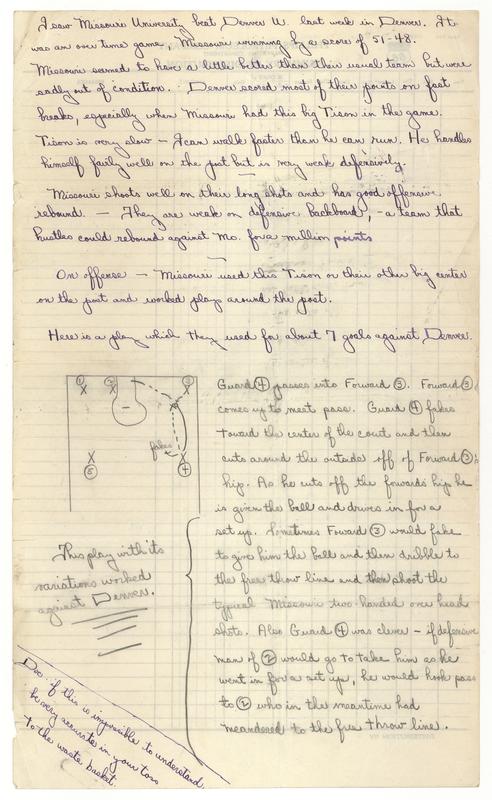 I saw Missouri University beat Denver U. last week in Denver. It
was an over time game, Missouri winning by a score of 51-48.
Missouri seemed to have a little better than their usual team but were
sadly out of condition. Denver scored most of their points on fast
breaks, especially when Missouri had this big Tison in the game.
Tison is very slow — I can walk faster than he can run. He handles
himself faily well on the post but is very weak defensively.
Missouri shoots well on their long shots and has good offensive
rebound. — They are weak on defensive backboard, - a team that
hustles could rebound against Mo. for a million points
On offense — Missouri used this Tison or their other big center
on the post and worked plays around the post.
Here is a play which they used for about 7 goals against Denver.
1 2 3
X X X
fakes
X X
5 4
Guard 4 passes into Forward 3. Forward 3
comes up to meet pass. Guard 4 fakes
toward the center of the court and then
cuts around the outside off of Forward 3's
hip. As he cuts off the forwards hip he
is given the ball and drives in for a
set up. Sometimes Foward 3 would fake
to give him the ball and then dribble to
the free throw line and then shoot the
typical Missouri two handed over head
shots. Also Guard 4 was clever - if defensive
man of 2 would go to take him as he
went in for a set up, he would hook pass
to 2 who in the meantime had
meandered to the free throw line.
This play with its
variations worked
against Denver.
Doc if this is impossible to understand
be very accurate in your toss
to the waste basket.